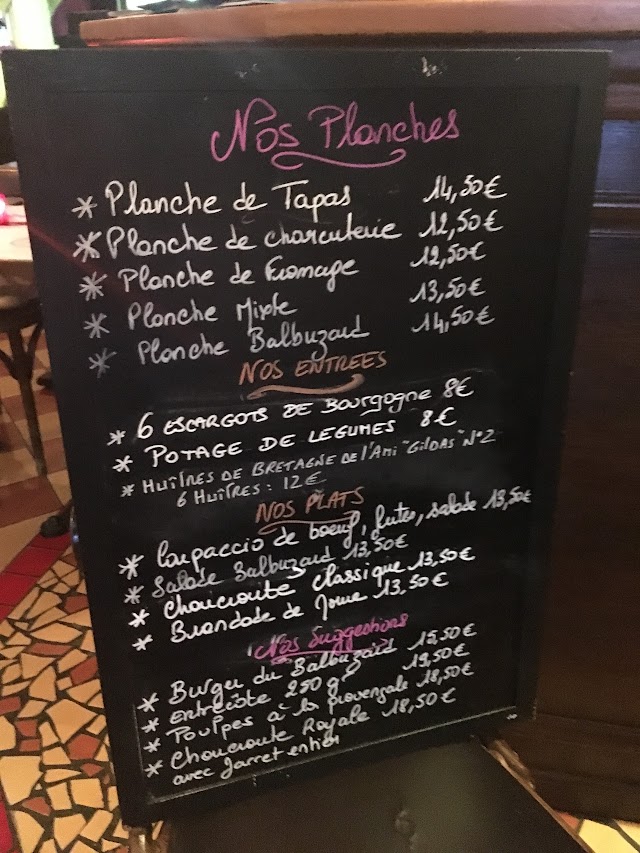 Nos Planches
* Planche de Tapas 14,50€
* Planche de charcuterie 12,50€
* Planche de Fromage 12,50€
* Planche Mixte 13,50€
* Planche Balbuzard 14,50€
NOS ENTREES
* 6 ESCARGOTS DE BOURGOGNE 8€
* POTAGE DE LEGUMES 8€
* HUÎTRES DE BRETAGNE DE l'AMI "GILDAS" N°2
6 HUÎTRES : 12€
NOS PLATS
* Carpaccio de boeuf, frites, salade 13,50€
* Salade Balbuzard 13,50€
* Choucroute classique 13,50€
* Brandade de Morue 13,50€
Nos Suggestions
* Burger du Balbuzard 15,50€
* Entrecôte 250 gr 19,50€
* Poulpes à la provençale 18,50€
* Choucroute Royale 18,50€
avec Jarret entier